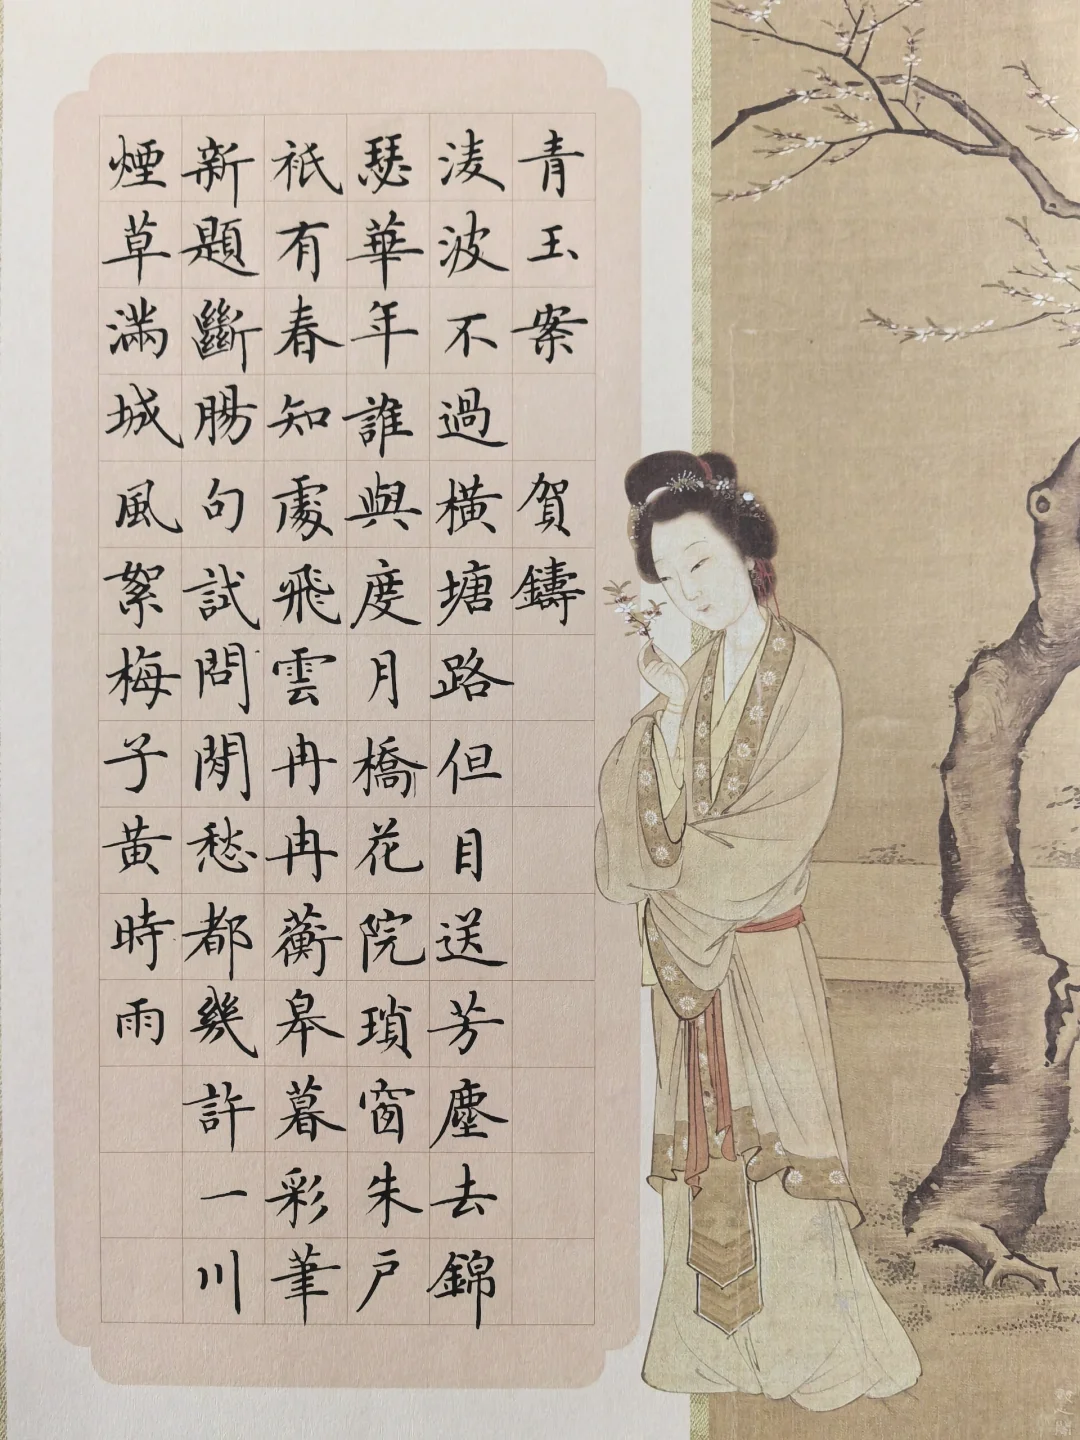 青玉案 賀鑄
淩波不過橫塘路但目送芳塵去錦
瑟華年誰與度月橋花院瑣窗朱戶
祇有春知處飛雲冉冉蘅皋暮彩筆
新題斷腸句試問閒愁都幾許一川
煙草滿城風絮梅子黃時雨